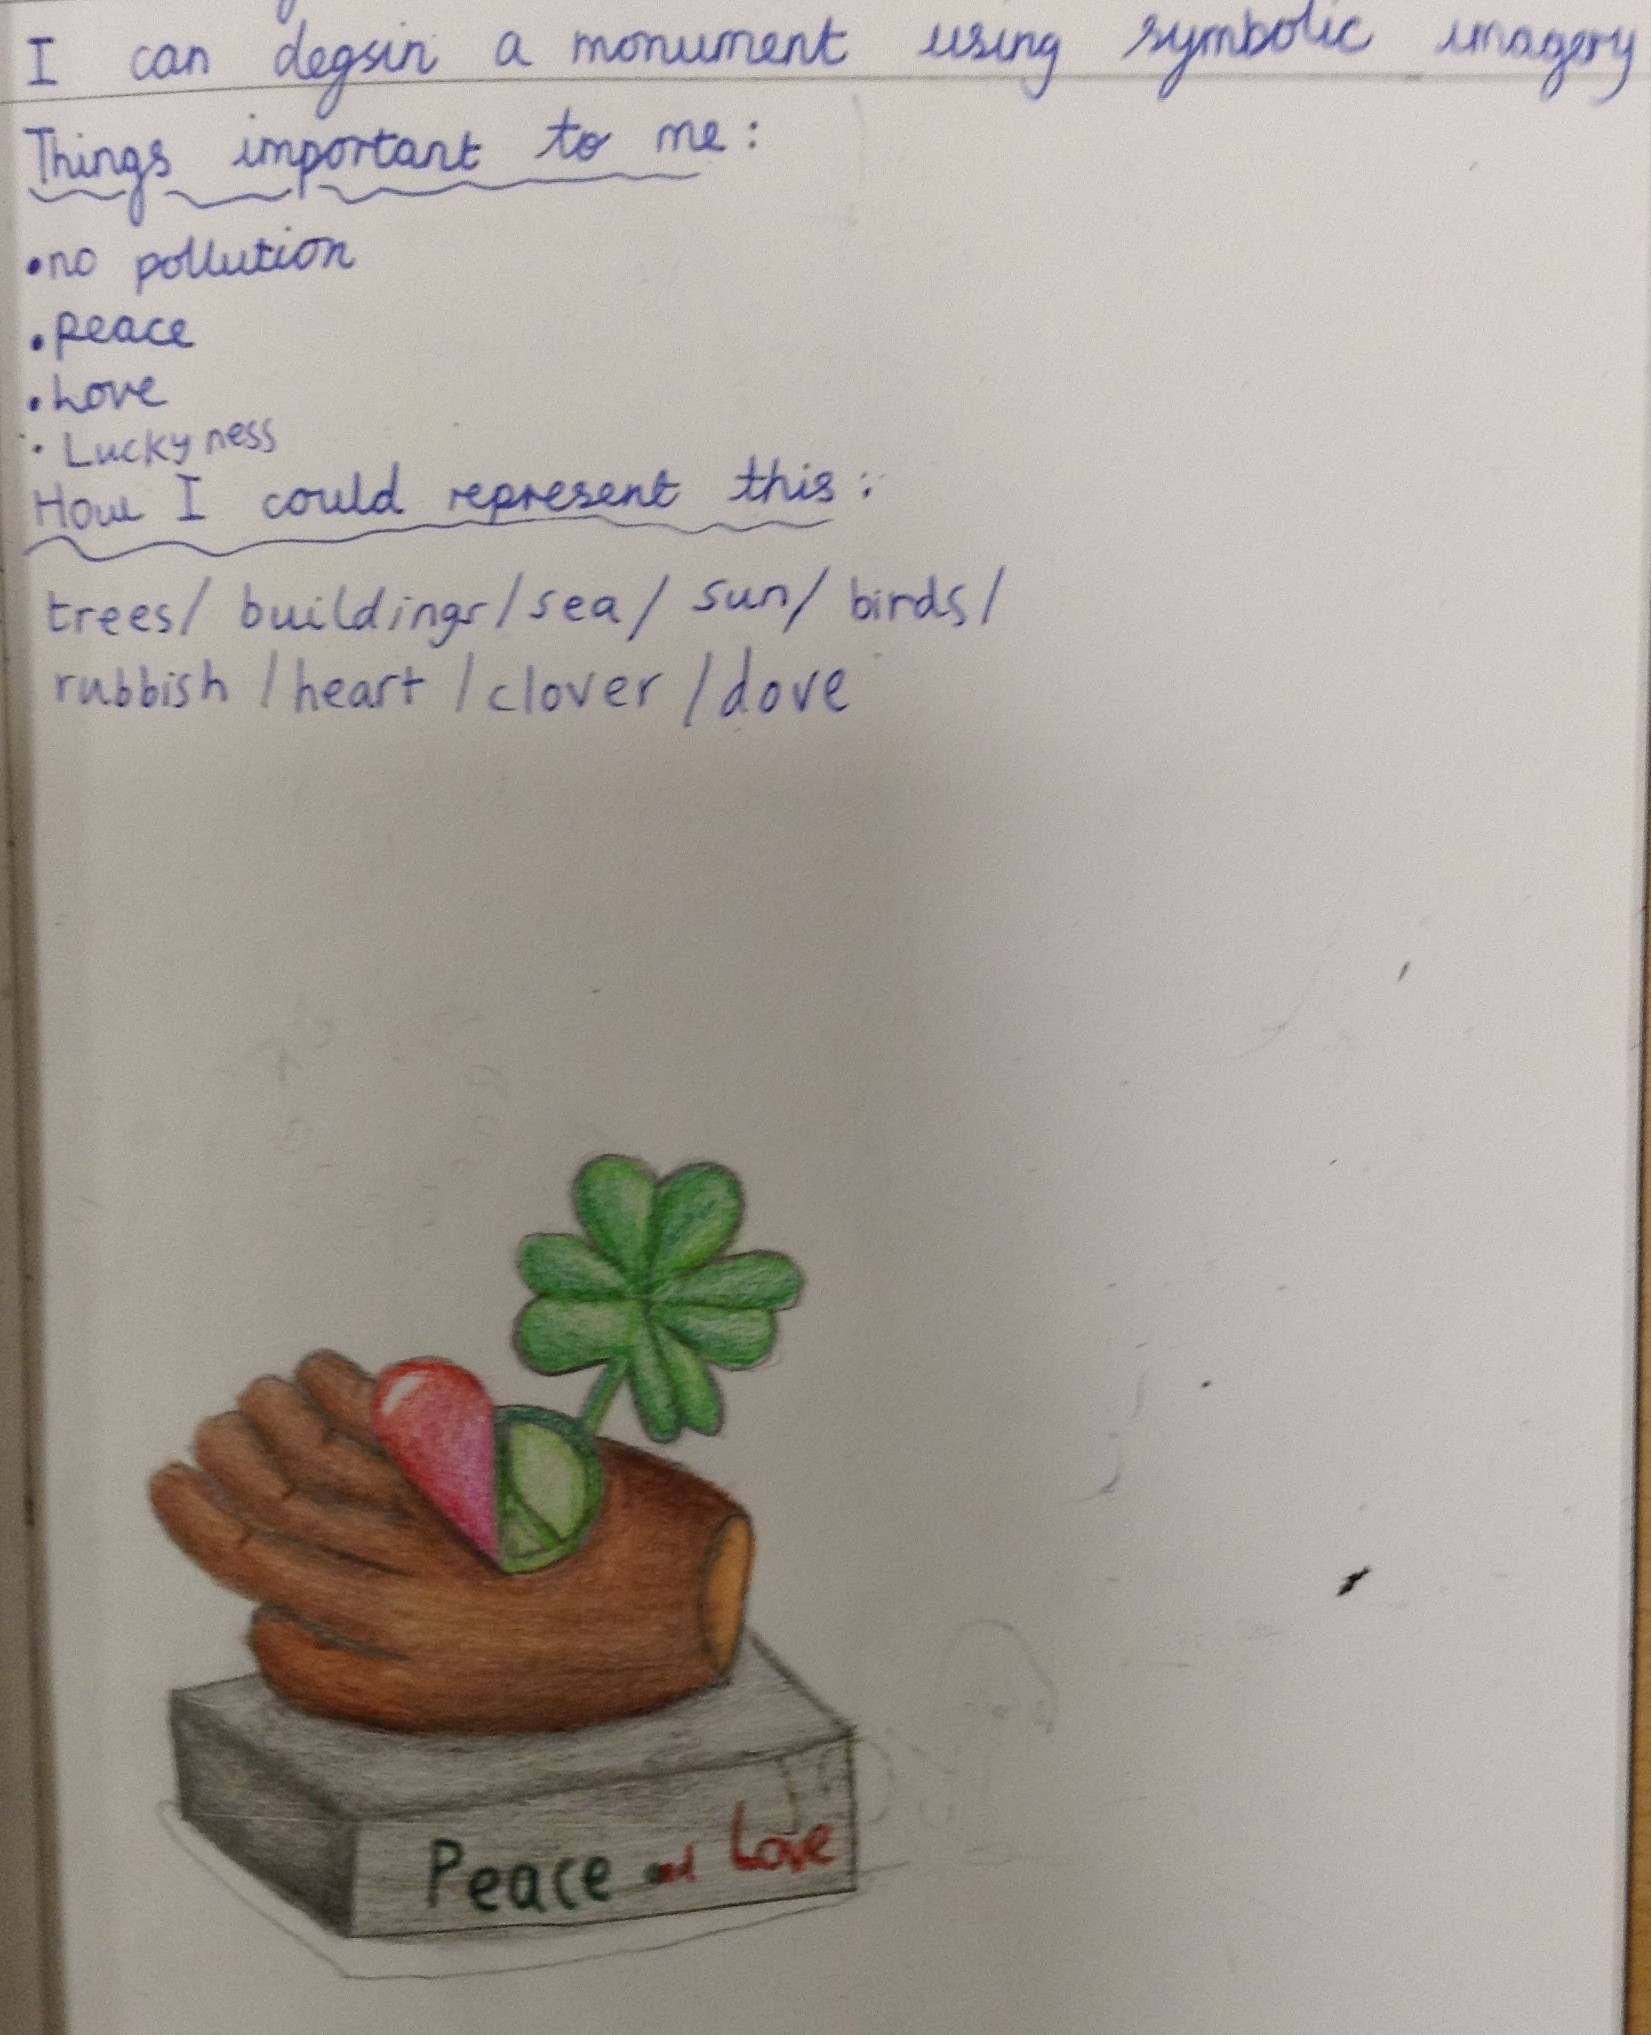 I can degsin a monument using symbolic imagery
Things important to me:
•no pollution
•peace
•Love
•Luckyness
How I could represent this:
trees/ buildings/sea/ sun/ birds/
rubbish /heart /clover /dove
Peace and Love